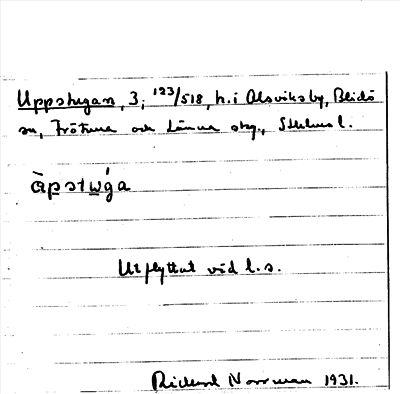 Uppstugan, 3, 123/518, h. i Alsviks by, Blidö
sn, Frötuna och Länna skg., Sthlms l.
àpstẃga
Utflyttat vid l.s.
Rickard Norrman 1931.